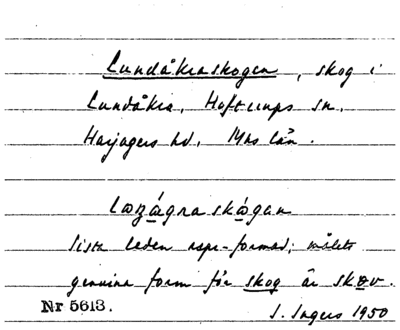 Lundåkraskogen, skog i
Lundåkra, Hofterups sn.
Harjagers hd. Mhs län.
lazágra skågan
Sista leden rspr-formad; målets
genuina form för skog är skov.
Nr 5613.
I. Ingers 1950